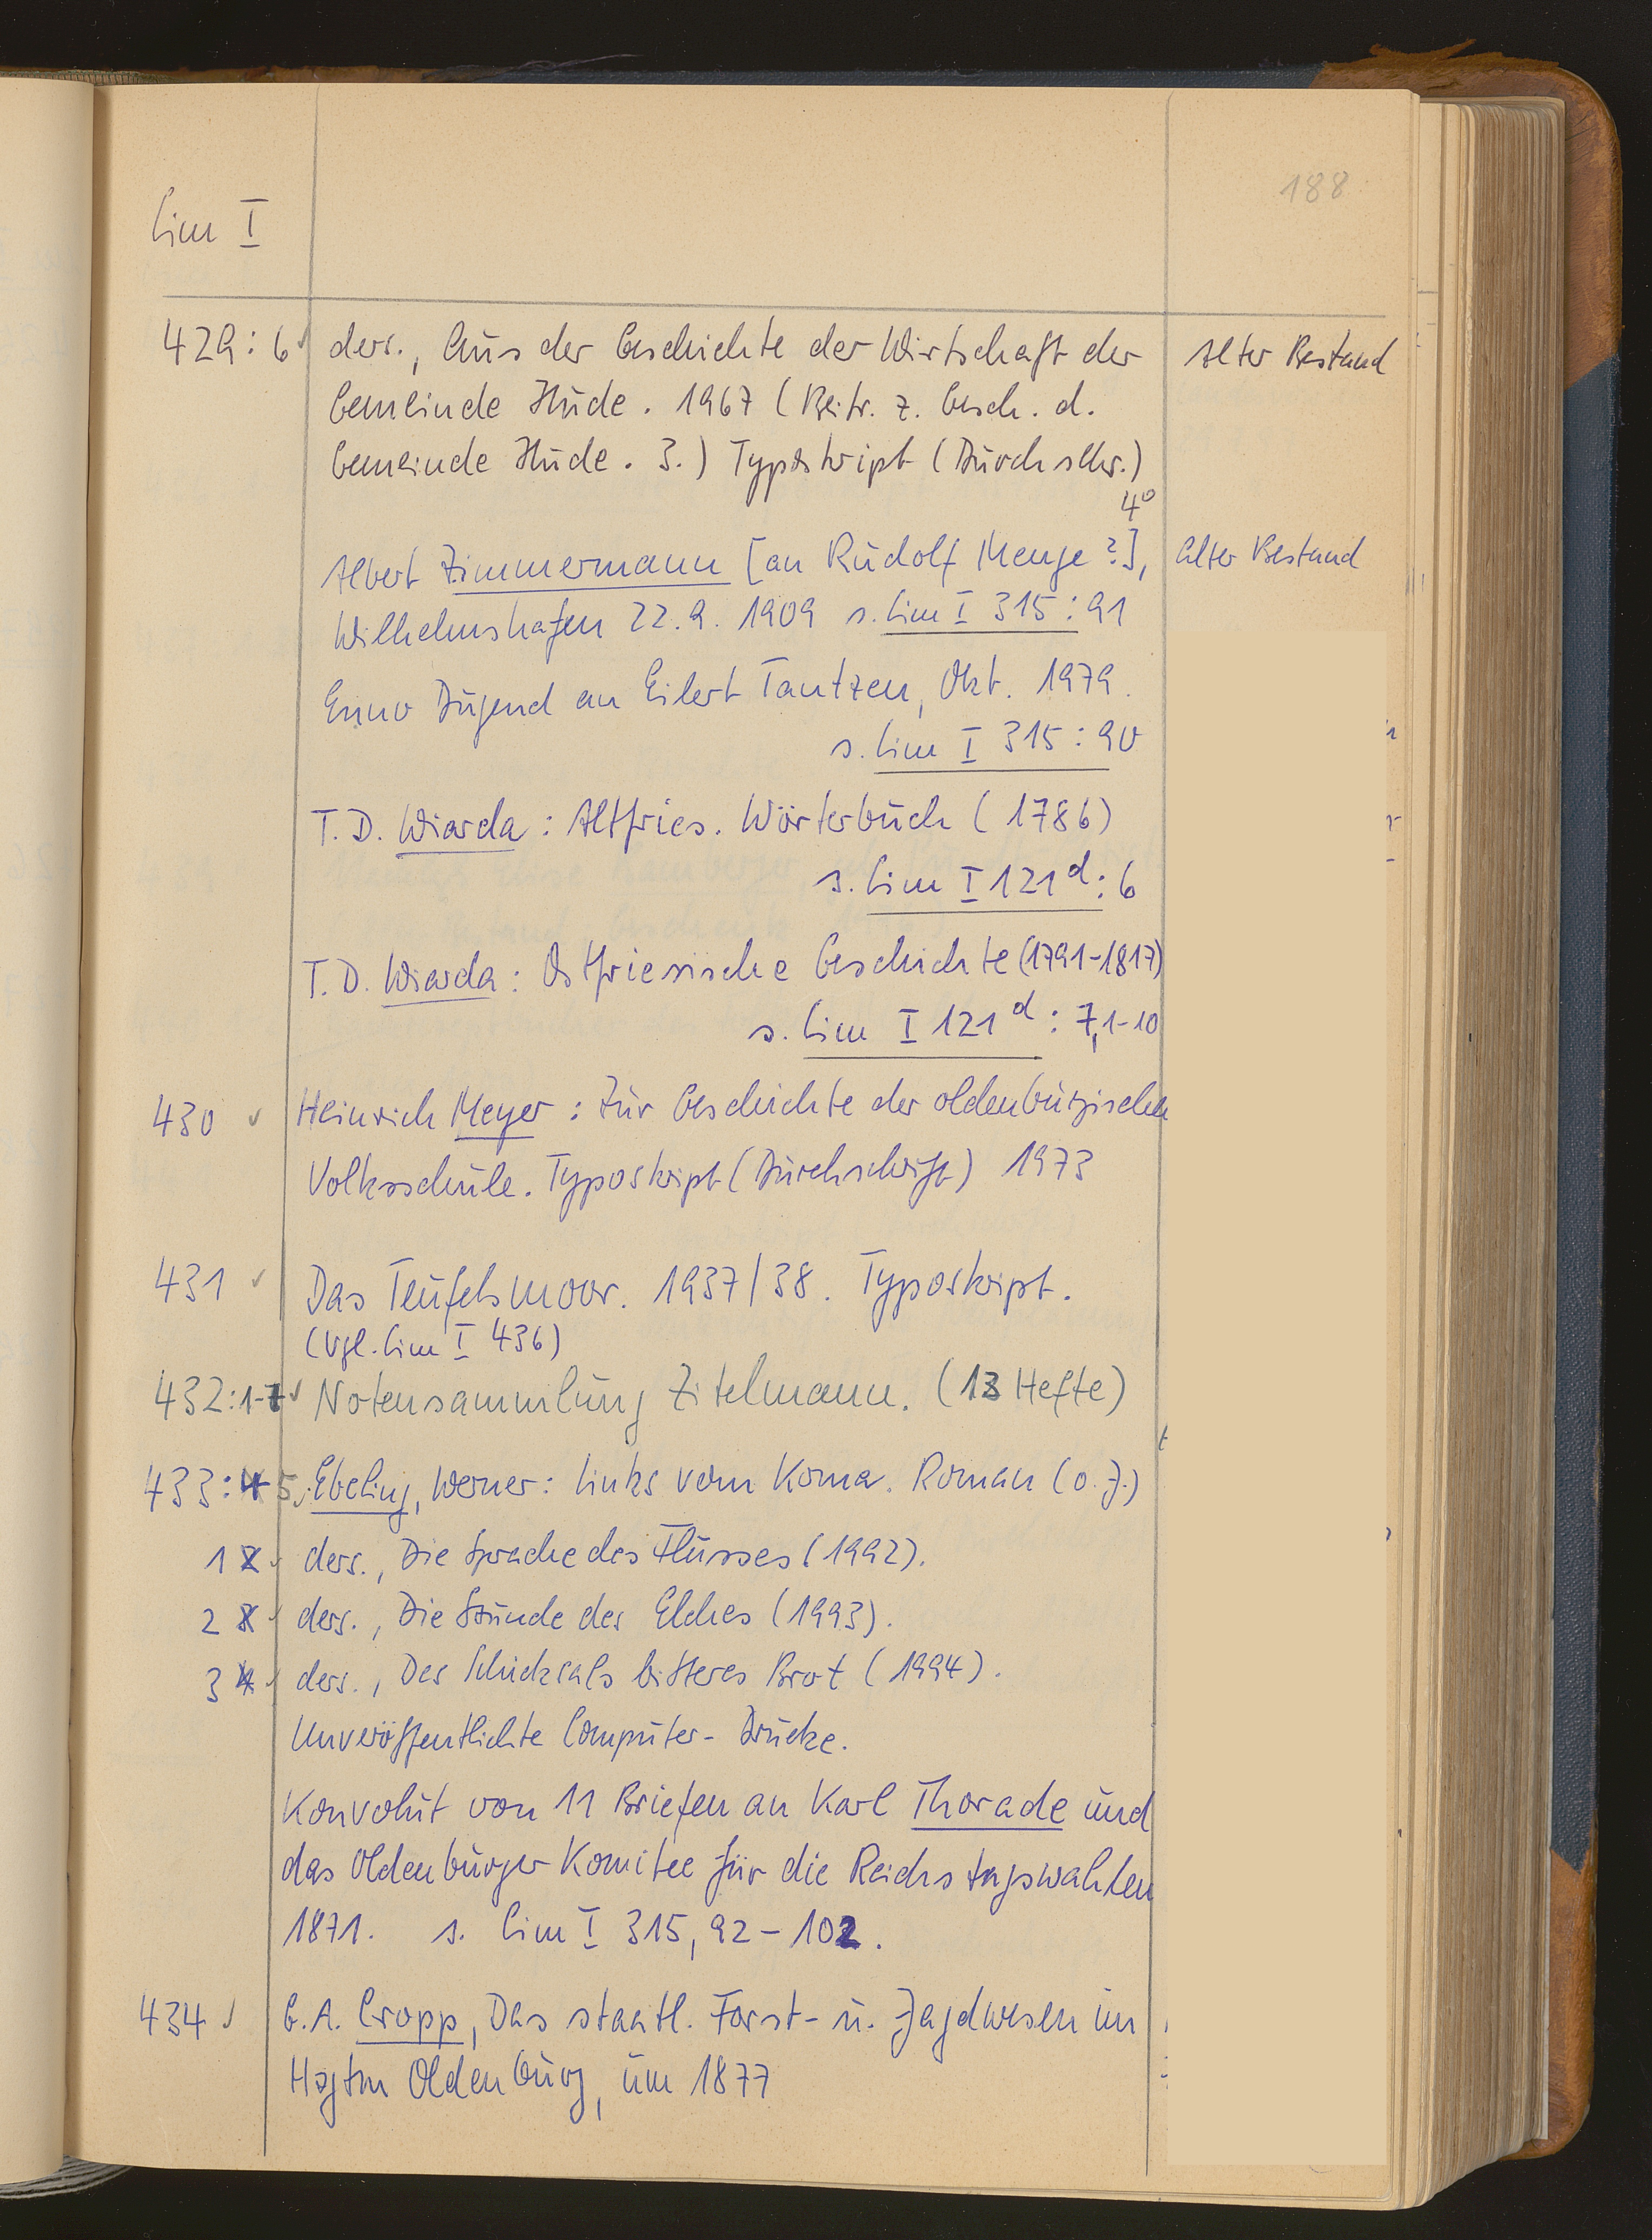 188
Cim I
429:6 ✓ ders., Aus der Geschichte der Wirtschaft der Alter Bestand
Gemeinde Hude. 1967 (Beitr. z. Gesch. d.
Gemeinde Hude. 3.) Typoskript (Durchschr.)
4°
Albert Zimmermann [an Rudolf Menge?], Alter Bestand
Wilhelmshafen 22.9.1909 s. Cim I 315:91
Enno Dugend an Eilert Tantzen, Okt. 1979.
s. Cim I 315:90
T. D. Wiarda: Altfries. Wörterbuch (1786)
s. Cim I 121d:6
T. D. Wiarda: Ostfriesische Geschichte (1791-1817)
s. Cim I 121d: 7,1-10
430 ✓ Heinrich Meyer: Zur Geschichte der oldenburgischen
Volksschule. Typoskript (Durchschrift) 1973
431 ✓ Das Teufelsmoor. 1937/38. Typoskript.
(Vgl. Cim I 436)
432:1-7 ✓ Notensammlung Zitelmann. (13 Hefte)
433:4 5 ✓ Ebeling, Werner: Links vom Koma. Roman (o.J.)
1 2 ✓ ders., Die Sprache des Flusses (1992).
2 3 ✓ ders., Die Stunde des Elches (1993).
3 4 ✓ ders., Des Schicksals bitteres Brot (1994).
Unveröffentlichte Computer-Drucke.
Konvolut von 11 Briefen an Karl Thorade und
das Oldenburger Komitee für die Reichstagswahlen
1871. s. Cim I 315, 92-102.
434 ✓ G. A. Cropp, Das staatl. Forst- u. Jagdwesen im
Hzgtm Oldenburg, um 1877